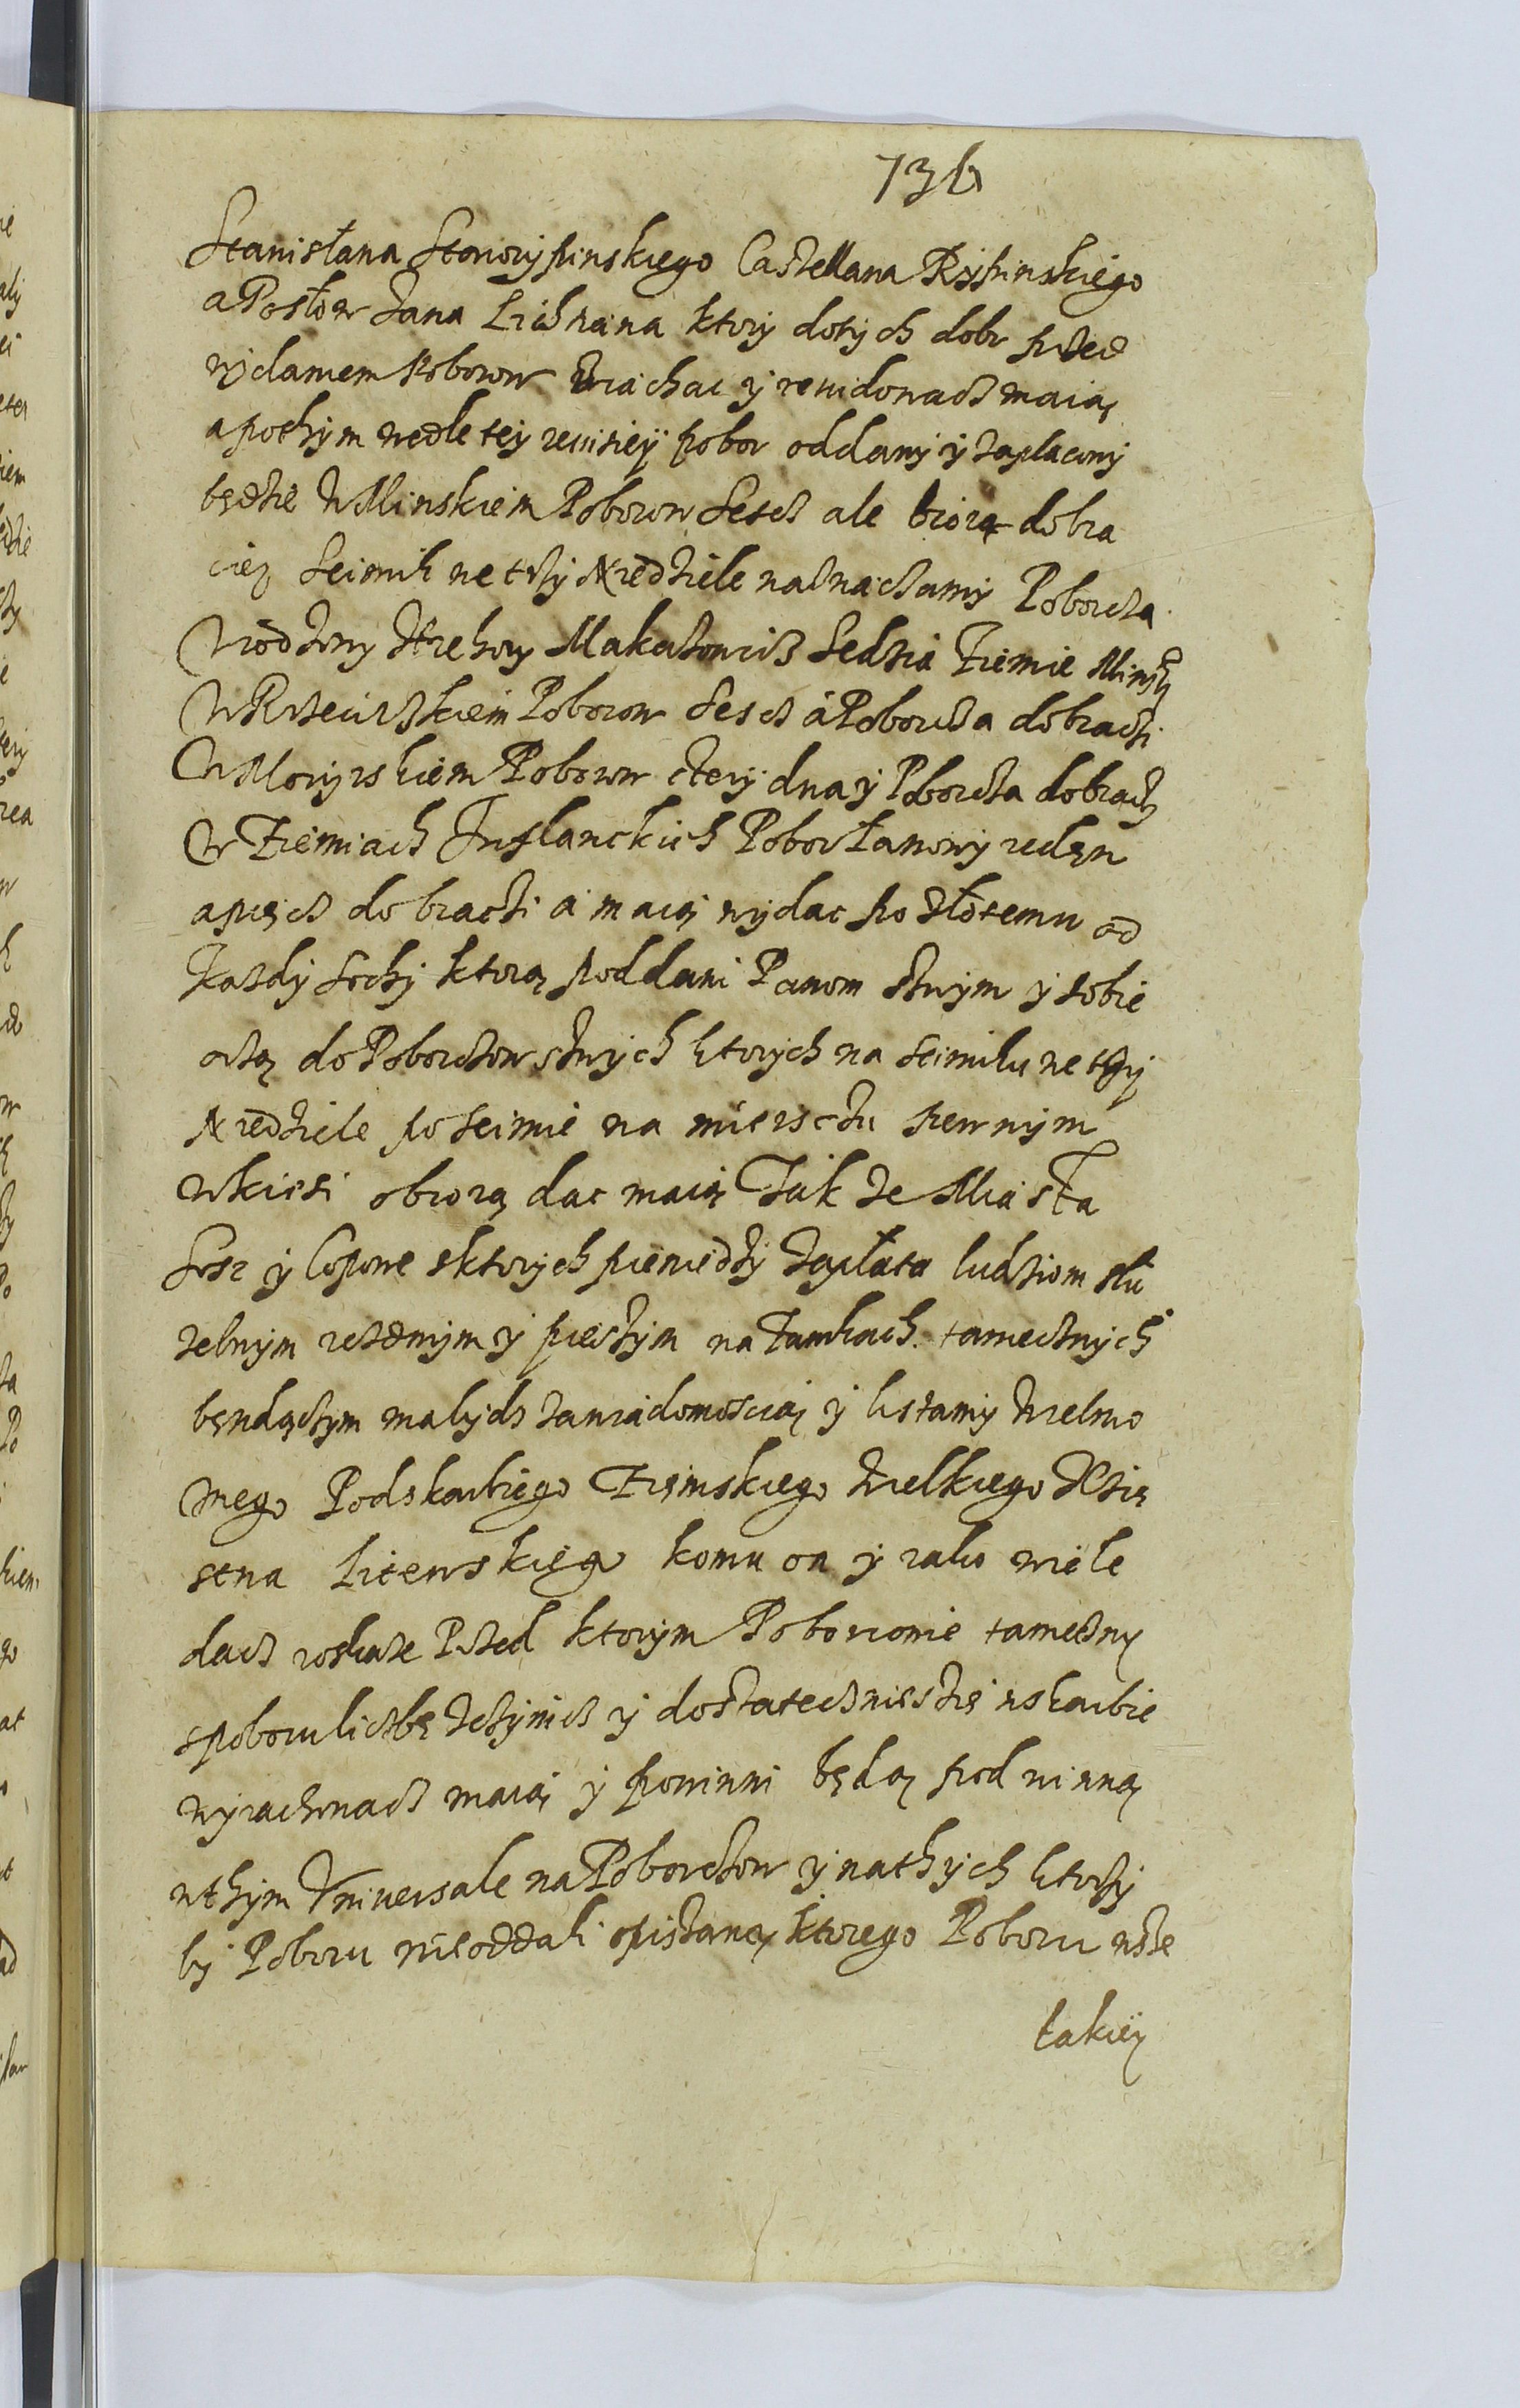 736
Stanisława Starorypinskiego Castellana Rypinskiego
a Posłow Jana Lichnaina ktory dotych dobr przed
wydaniem Poborow wiachac y rewidowacz maią
a pothym wedle tey reuisiey pobor oddany y zapłacony
będzie W Minskiem Poborow Sescz ale biorą dobra
cię Seimik we trzy Niedziele naznaczamy Poborcza
Vrodzony Hrehory Makarowicz Sedzia Ziemie Minsky
W Rzeczickiem Poborow Sescz a Poborcza dobracz
W Mozyrskiem Poborow cztery dna y Poborcza dobracz
W Ziemiach Inflanckich Pobor Łanowy ieden
a pięcz do braczi a maią wydac po złotemu od
każdy sochy ktorą poddani Panom swym y sobie
orzą do Poborczow swych ktorych na seimiku we trzy
Niedziele po seimie na mieisczu pewnym
w kiesi obiorą dac maią Tak ze Miasta
Sosz y Copowe sktorych pieniedzy zapłata ludziom słu
zebnym iezdnym y pieszym na zamkach tamecznych
bendączym ma bydz zawiadomoscią y listamy Wielmo
znego Podskarbiego Ziemskiego Wielkiego Xzię
stwa Litewskiego komu on y iako wiele
dacz roskaze Przed ktorym Poborcowie tameczny
s poboru liczbę uczynicz y dostatecznie sie w skarbie
wyrachowacz maią y powinni będą pod winną
w thym Vniuersale na Poborczow y na thych ktorzy
by Poboru nieoddali opisaną ktorego Poboru wsze
łakiey